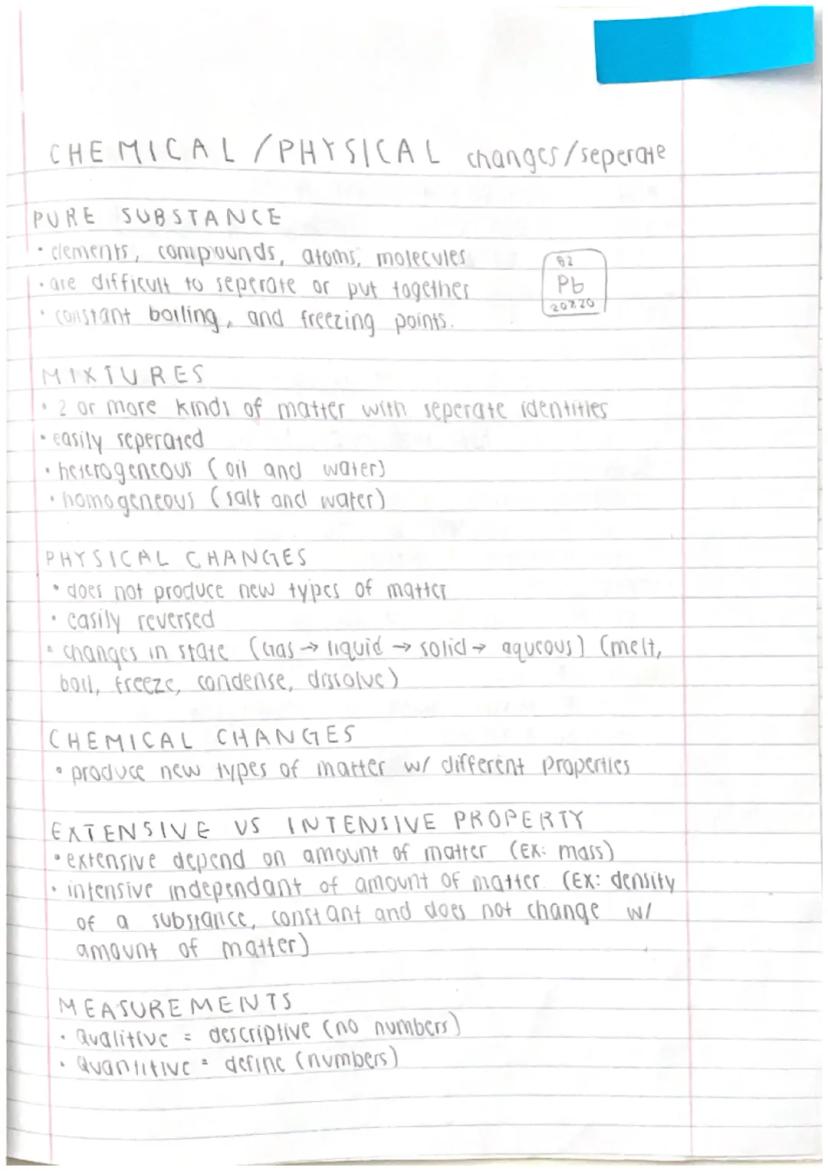 CHEMICAL/PHYSICAL changes/seperate
PURE SUBSTANCE
• elements, compounds, atoms, molecules
• are difficult to seperate or put together
• constant boiling, and freezing points.
82
Pb
207.20
MIXTURES
• 2 or more kinds of matter with seperate identities
• easily seperated
• heterogeneous (oil and water)
• homogeneous (salt and water)
PHYSICAL CHANGES
• does not produce new types of matter
• easily reversed
• changes in state (Gas → liquid → solid → aqueous) (melt,
boil, freeze, condense, dissolve)
CHEMICAL CHANGES
• produce new types of matter w/ different properties
EXTENSIVE VS INTENSIVE PROPERTY
• extensive depend on amount of matter (EX: mass)
• intensive independant of amount of matter (EX: density
of a substance, constant and does not change w/
amount of matter)
MEASUREMENTS
• Qualitive = descriptive (no numbers)
• Quantitive = define (numbers)